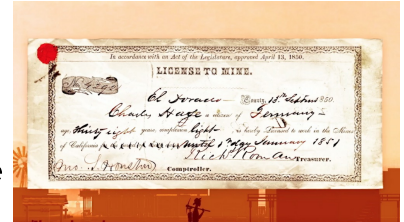 In accordance with an Act of the Legislature, approved April 13, 1850.
LICENSE TO MINE.
El Dorado County, 18th Septem 1850.
Charles a citizen of Germany
age thirty eight years, complexion light is hereby licensed to work in the Mines
of California until 1st day January 1851
Jno. S. Houston Comptroller.
Rich Roman Treasurer.
e